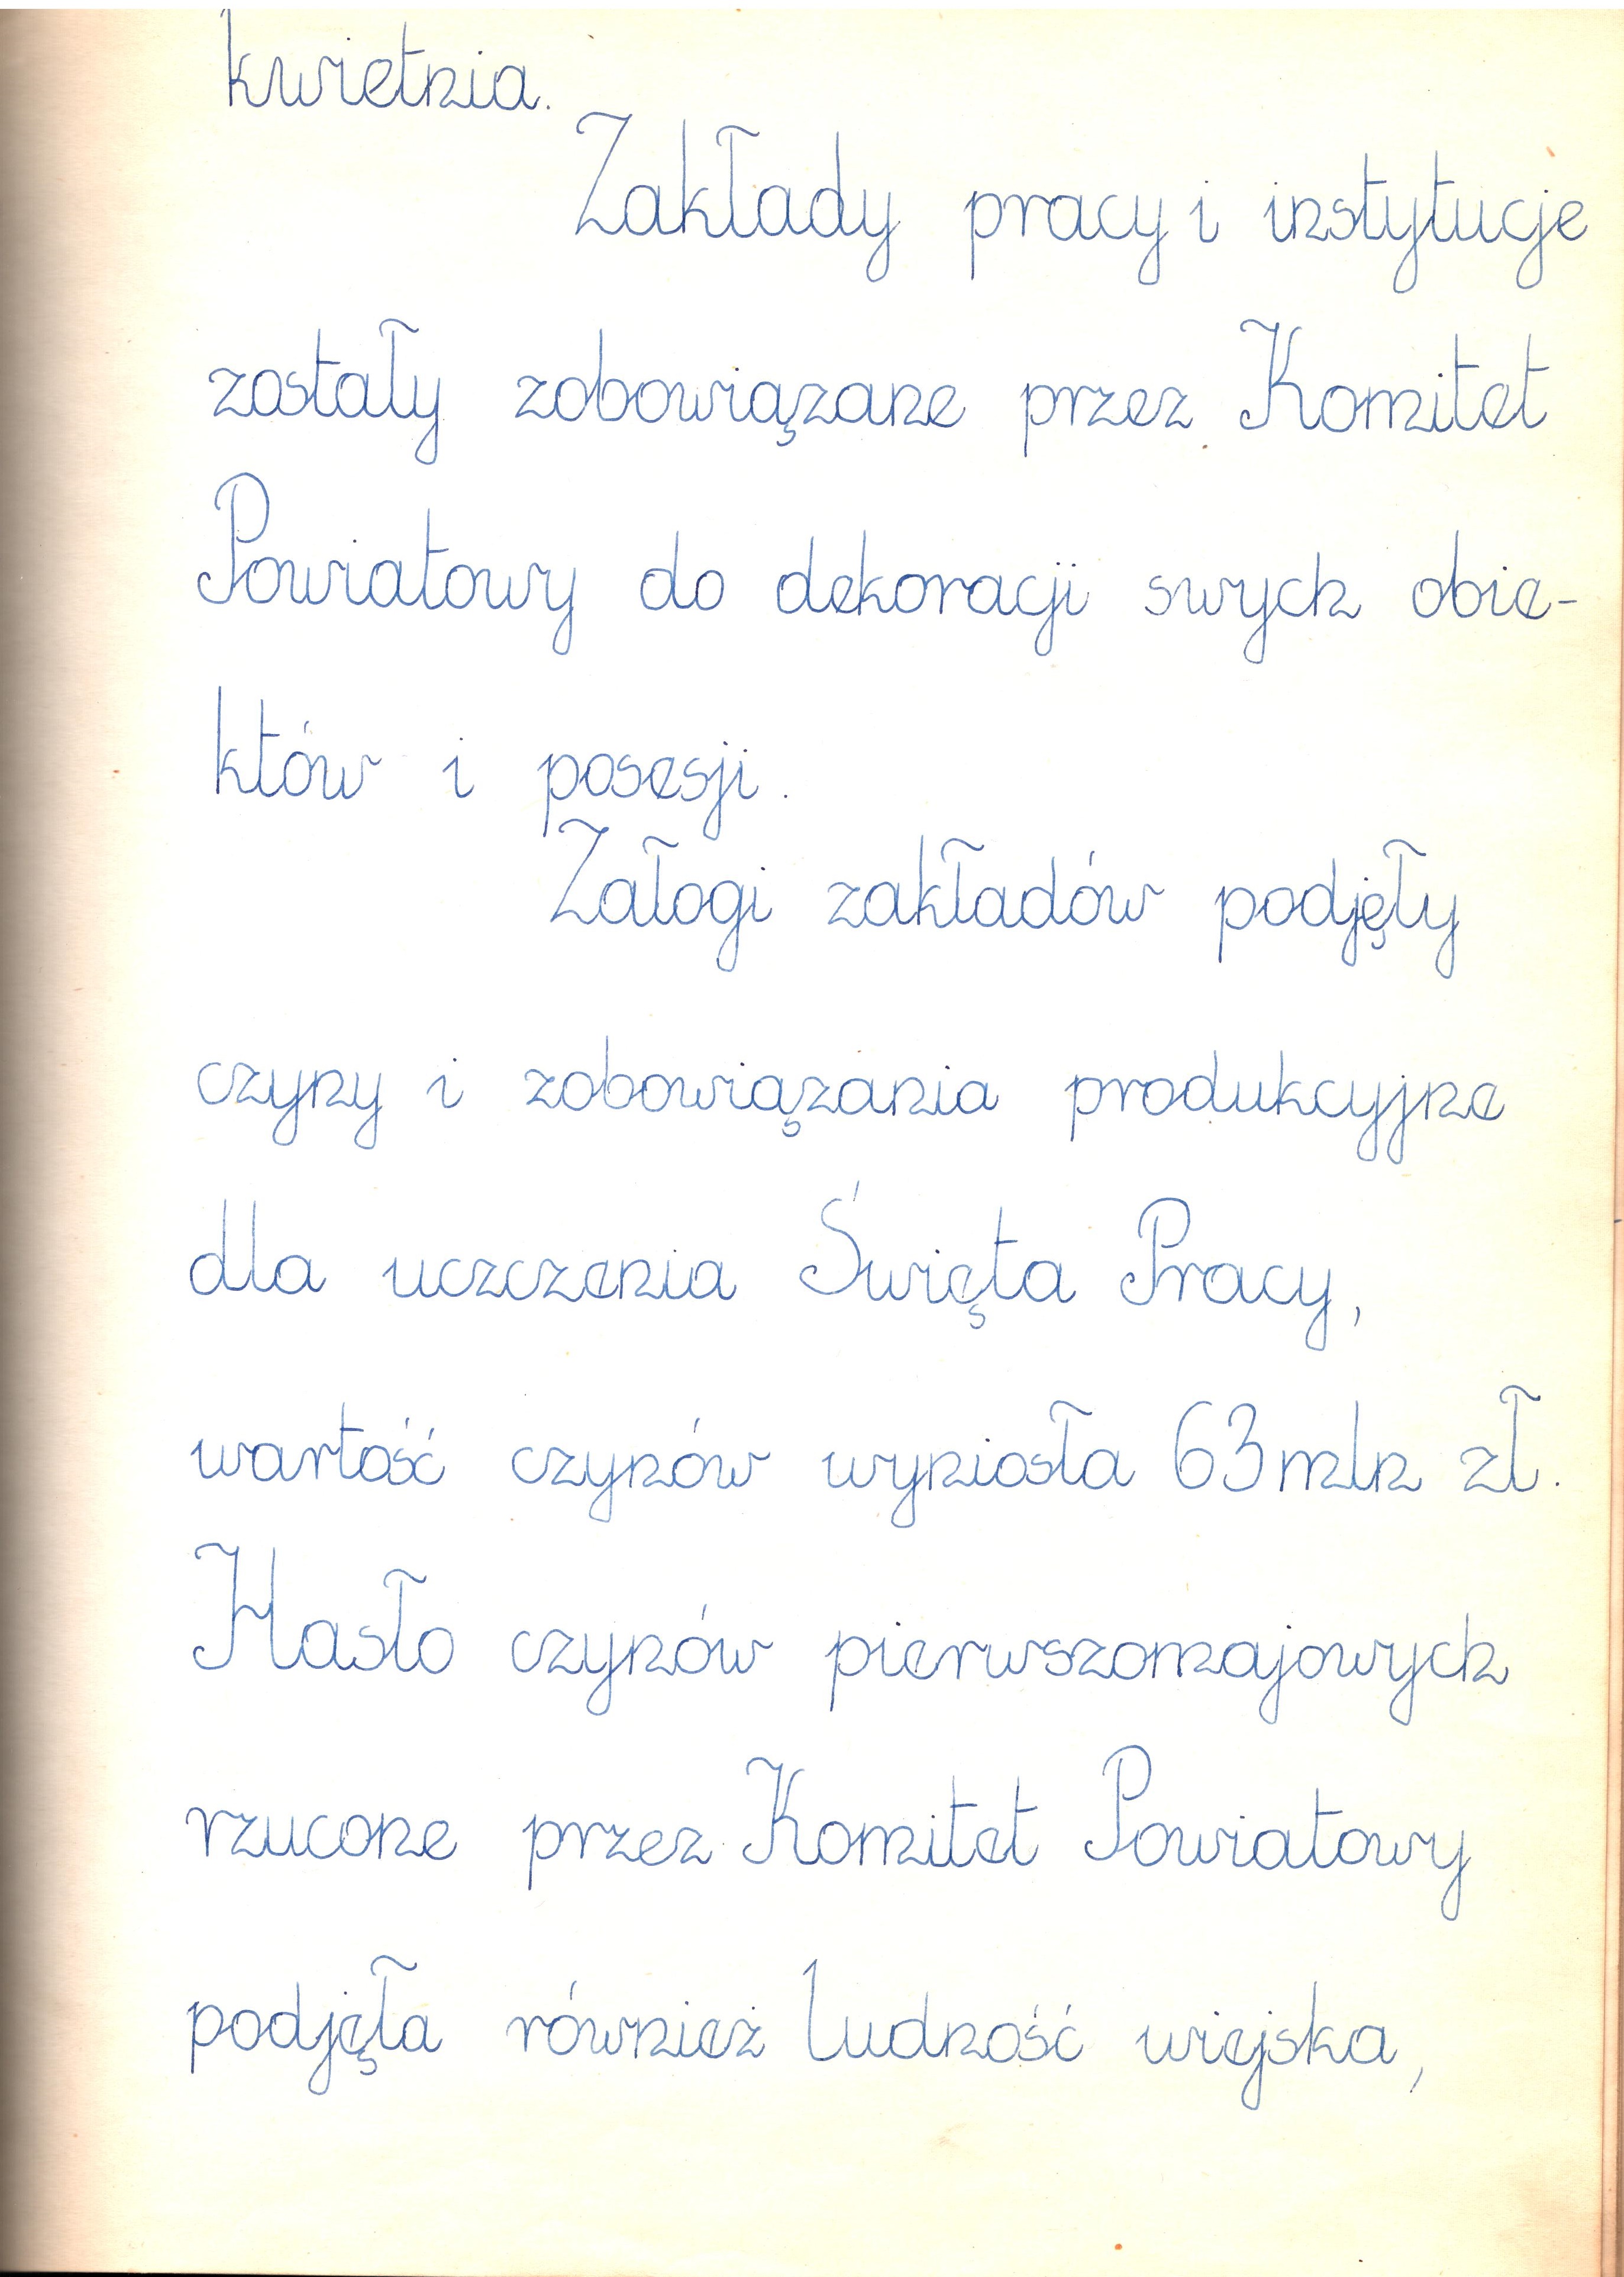 kwietnia.
Zakłady pracy i instytucje
zostały zobowiązane przez Komitet
Powiatowy do dekoracji swych obie-
któw i posesji.
Załogi zakładów podjęły
czyny i zobowiązania produkcyjne
dla uczczenia Święta Pracy,
wartość czynów wyniosła 63 mln zł.
Hasło czynów pierwszomajowych
rzucone przez Komitet Powiatowy
podjęła również ludność wiejska,